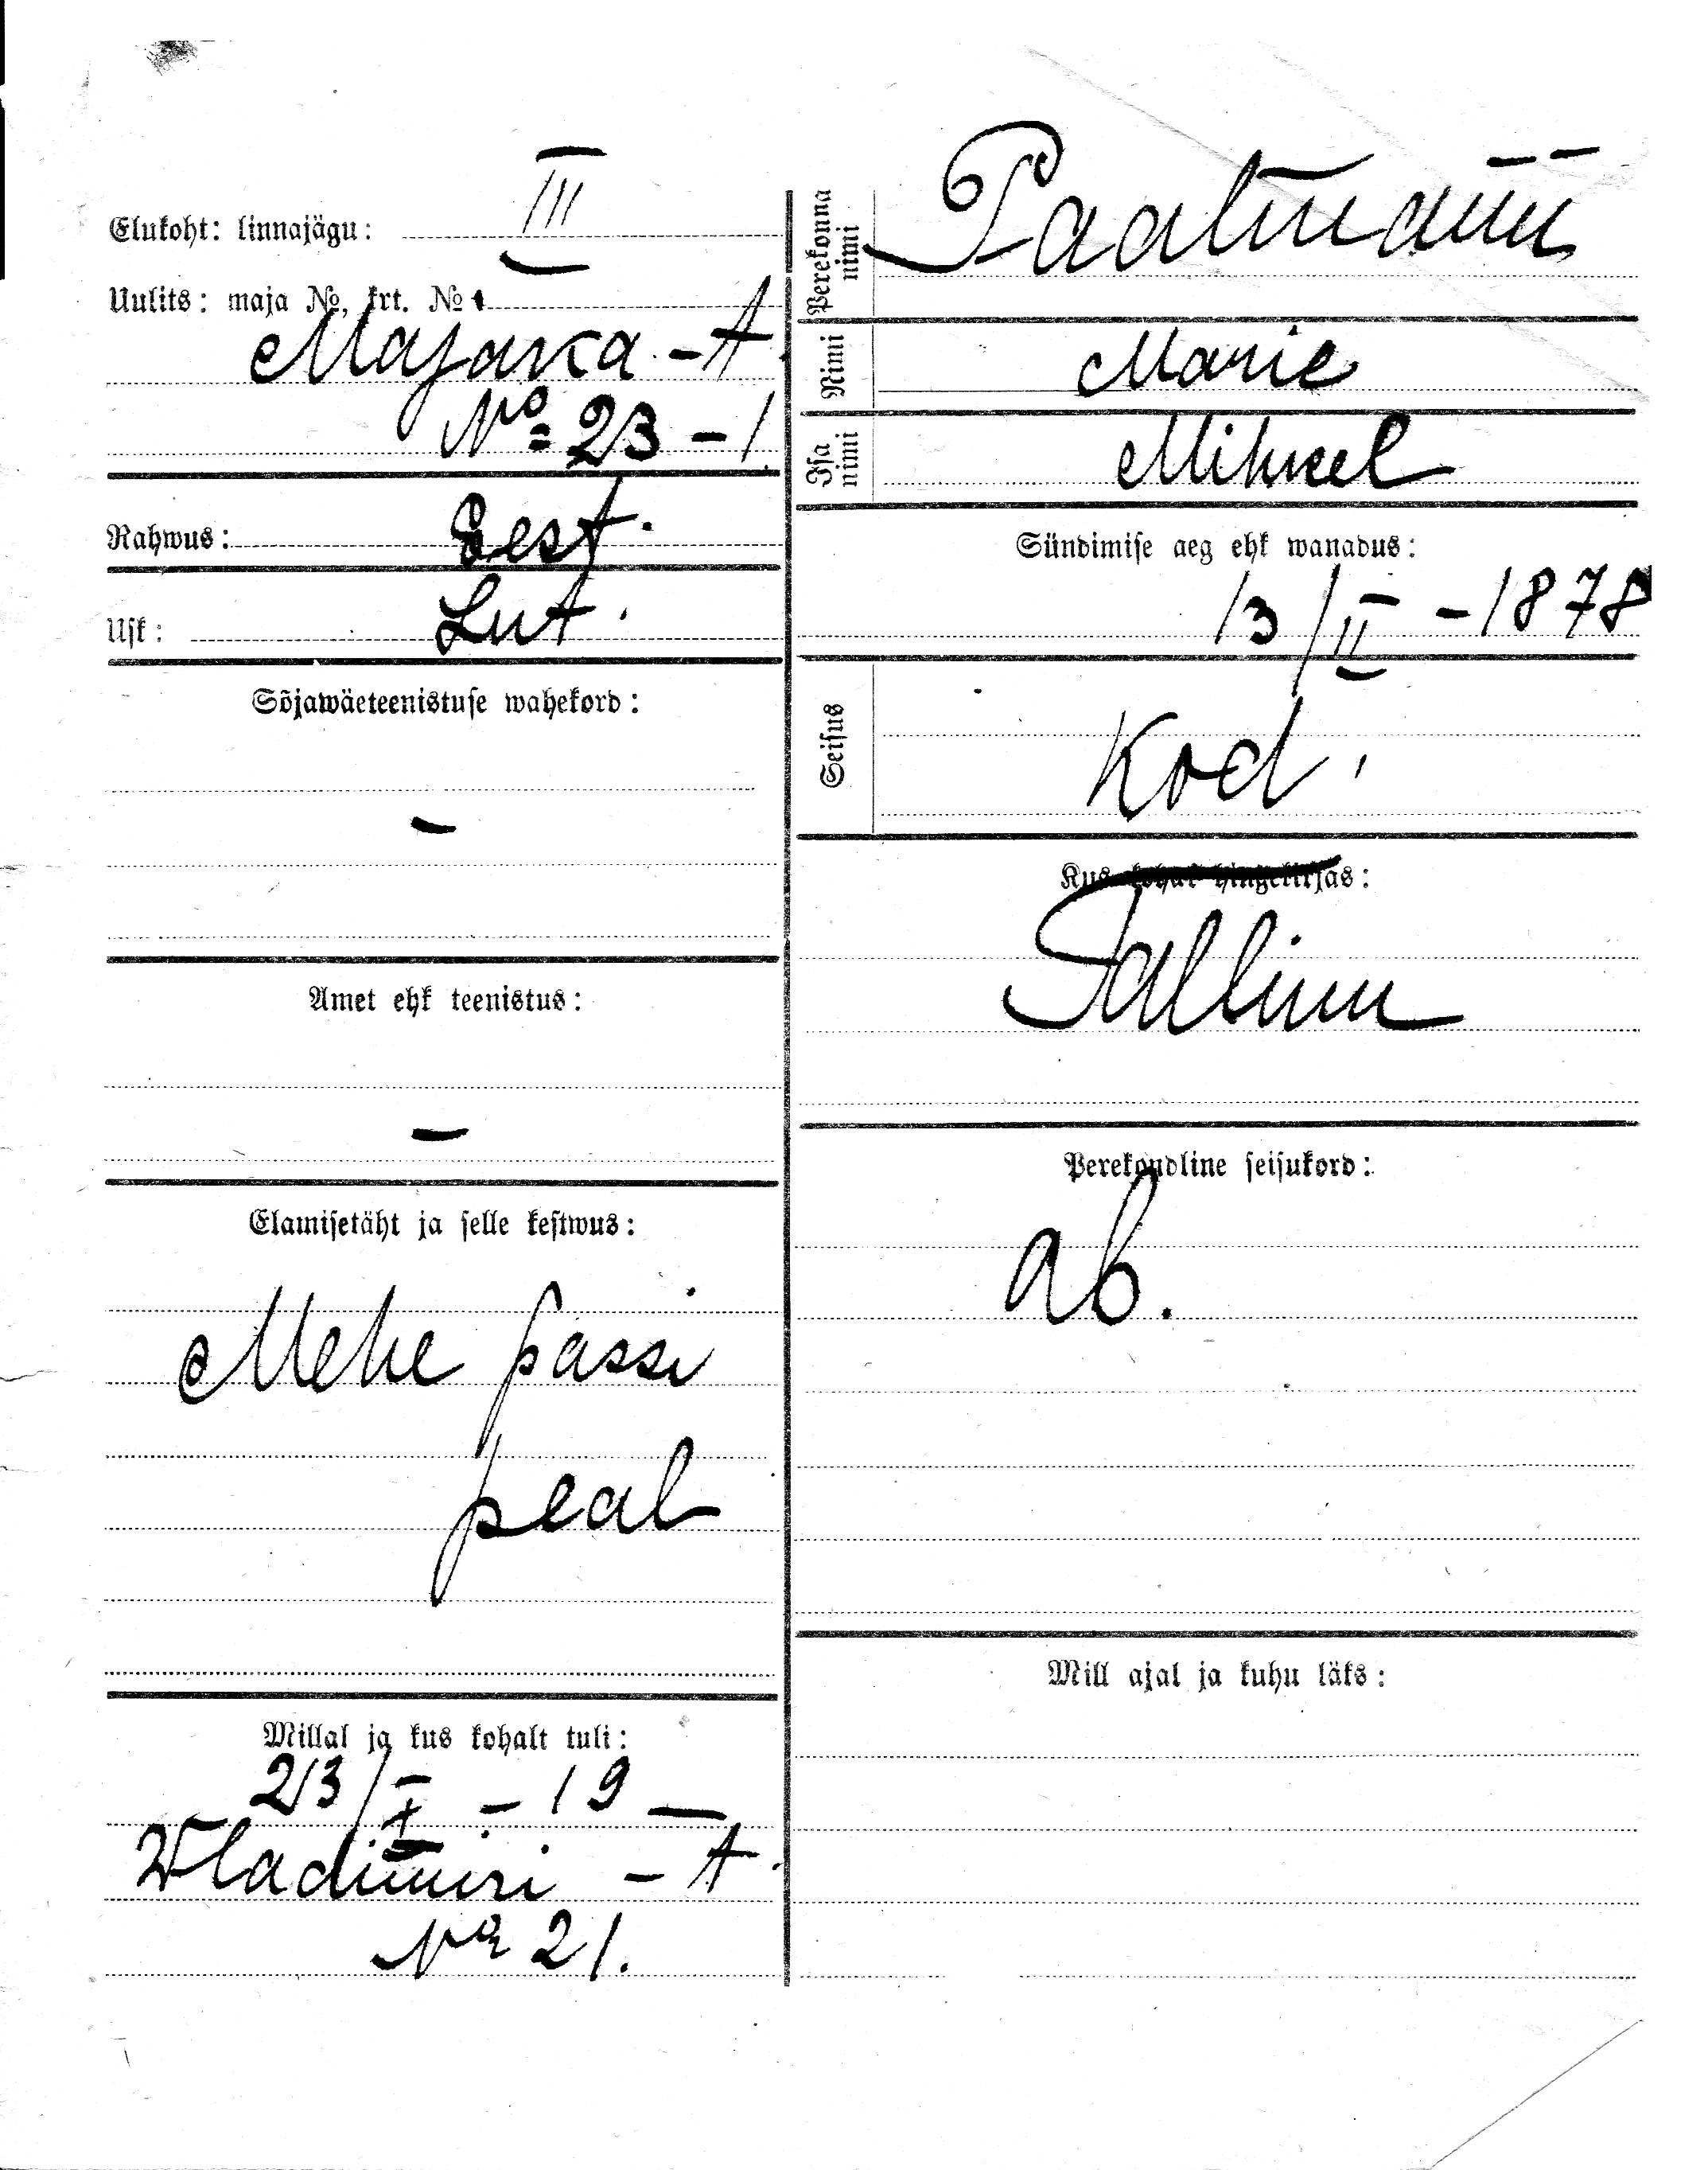 Elukoht: linnajägu: III
Uulits: maja №, krt. №
Majaka - t.
№ 23 - 1
Rahwus: Eest.
Usk: Lut.
Sõjawäeteenistuse wahekord:
–
Amet ehk teenistus:
–
Elamisetäht ja selle kestwus:
Mehe passi
peal
Millal ja kus kohalt tuli:
23/X - 19
Wladimiri - t.
№ 21.
Perekonna nimi
Paatmann
Nimi
Marie
Isa nimi
Mihkel
Sündimise aeg ehk wanadus:
13/II - 1878
Seisus
Kod.
Kus kohal hingekirjas:
Tallinn
Perekondline seisukord:
ab.
Mill ajal ja kuhu läks: